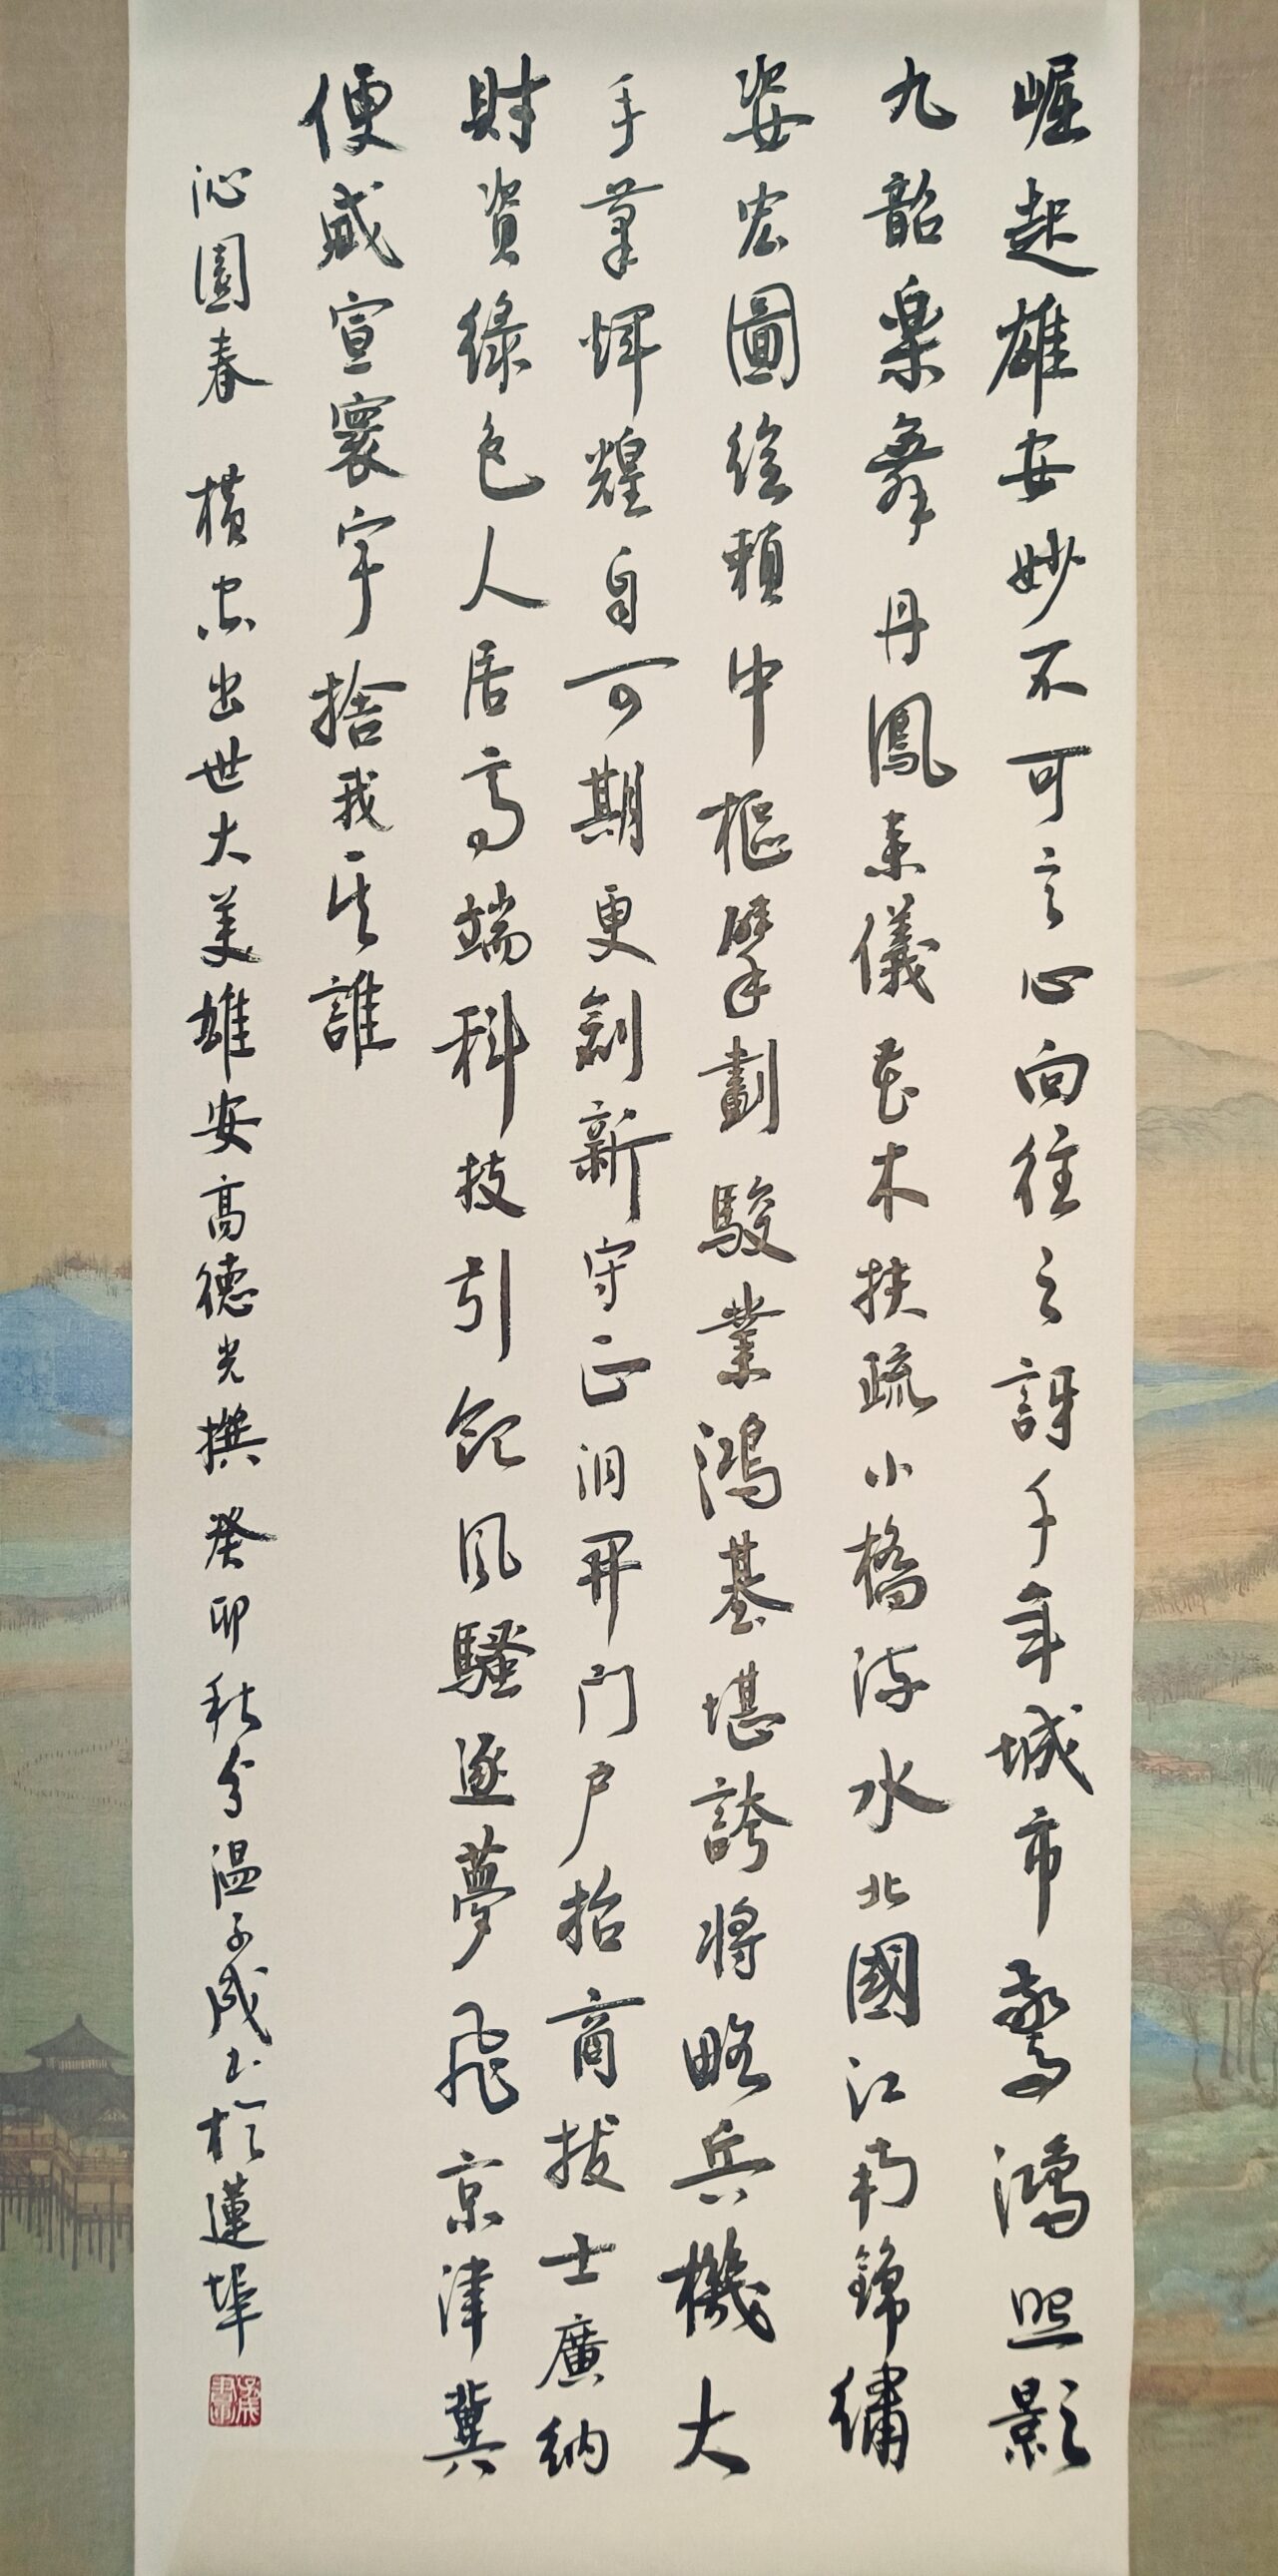 崛起雄安妙不可言心向往之訝千年城市驚鴻照影
九韶樂舞丹鳳來儀花木扶疏小橋流水北國江南錦繡
姿宏圖繪賴中樞擘劃駿業鴻基堪誇將略兵機大
手筆輝煌自可期更創新守正洞開門戶招商拔士廣納
財資綠色人居高端科技引領風騷逐夢飛京津冀
便威宣寰宇捨我其誰
沁園春 橫空出世大美雄安高德光撰癸卯秋分溫子成書於蓮埠
子成書印